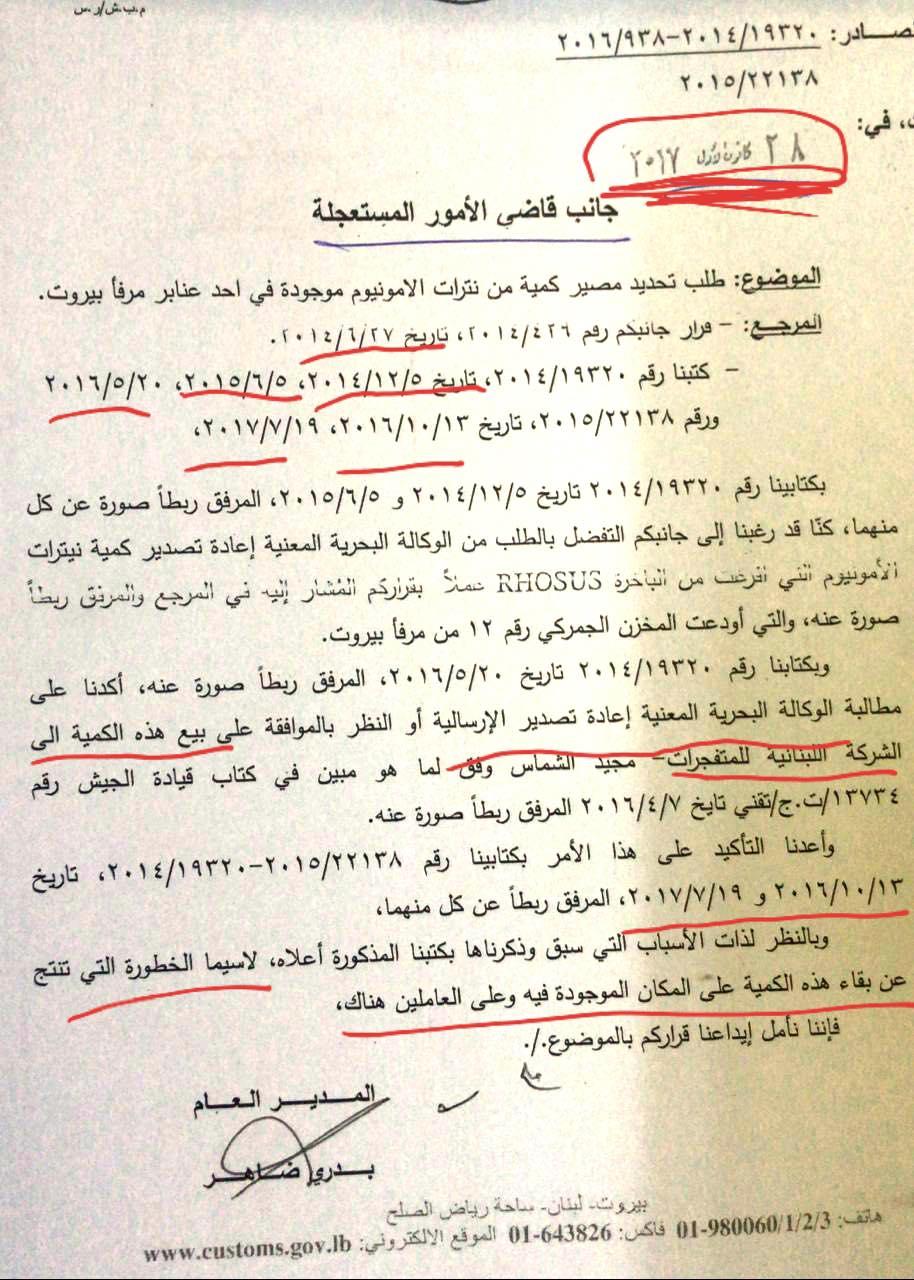 م.ب.ش/ر.س
صـادر: ٢٠١٤/١٩٣٢٠-٢٠١٦/٩٣٨
٢٠١٥/٢٢١٣٨
ت، في:
٢٨ كانون الأول ٢٠١٧
جانب قاضي الأمور المستعجلة
الموضوع: طلب تحديد مصير كمية من نترات الامونيوم موجودة في احد عنابر مرفأ بيروت.
المرجـع: - قرار جانبكم رقم ٢٠١٤/٤٢٦، تاريخ ٢٠١٤/٦/٢٧.
- كتبنا رقم ٢٠١٤/١٩٣٢٠، تاريخ ٢٠١٤/١٢/٥، ٢٠١٥/٦/٥، ٢٠١٦/٥/٢٠
ورقم ٢٠١٥/٢٢١٣٨، تاريخ ٢٠١٦/١٠/١٣، ٢٠١٧/٧/١٩،
بكتابينا رقم ٢٠١٤/١٩٣٢٠ تاريخ ٢٠١٤/١٢/٥ و ٢٠١٥/٦/٥، المرفق ربطاً صورة عن كل
منهما، كنّا قد رغبنا إلى جانبكم التفضل بالطلب من الوكالة البحرية المعنية إعادة تصدير كمية نيترات
الأمونيوم التي افرغت من الباخرة RHOSUS عملاً بقراركم المُشار إليه في المرجع والمرفق ربطاً
صورة عنه، والتي أودعت المخزن الجمركي رقم ١٢ من مرفأ بيروت.
وبكتابنا رقم ٢٠١٤/١٩٣٢٠ تاريخ ٢٠١٦/٥/٢٠، المرفق ربطاً صورة عنه، أكدنا على
مطالبة الوكالة البحرية المعنية إعادة تصدير الإرسالية أو النظر بالموافقة على بيع هذه الكمية الى
الشركة اللبنانية للمتفجرات- مجيد الشماس وفق لما هو مبين في كتاب قيادة الجيش رقم
١٣٧٣٤/ت.ج/تقني تايخ ٢٠١٦/٤/٧ المرفق ربطاً صورة عنه.
وأعدنا التأكيد على هذا الأمر بكتابينا رقم ٢٠١٥/٢٢١٣٨-٢٠١٤/١٩٣٢٠، تاريخ
٢٠١٦/١٠/١٣ و ٢٠١٧/٧/١٩، المرفق ربطاً عن كل منهما،
وبالنظر لذات الأسباب التي سبق وذكرناها بكتبنا المذكورة أعلاه، لاسيما الخطورة التي تنتج
عن بقاء هذه الكمية على المكان الموجودة فيه وعلى العاملين هناك،
فإننا نأمل إيداعنا قراركم بالموضوع./.
المـديـر العـام
بـدري ضـاهـر
بيروت- لبنان- ساحة رياض الصلح
هاتف: 01-980060/1/2/3 فاكس: 01-643826 الموقع الالكتروني: www.customs.gov.lb